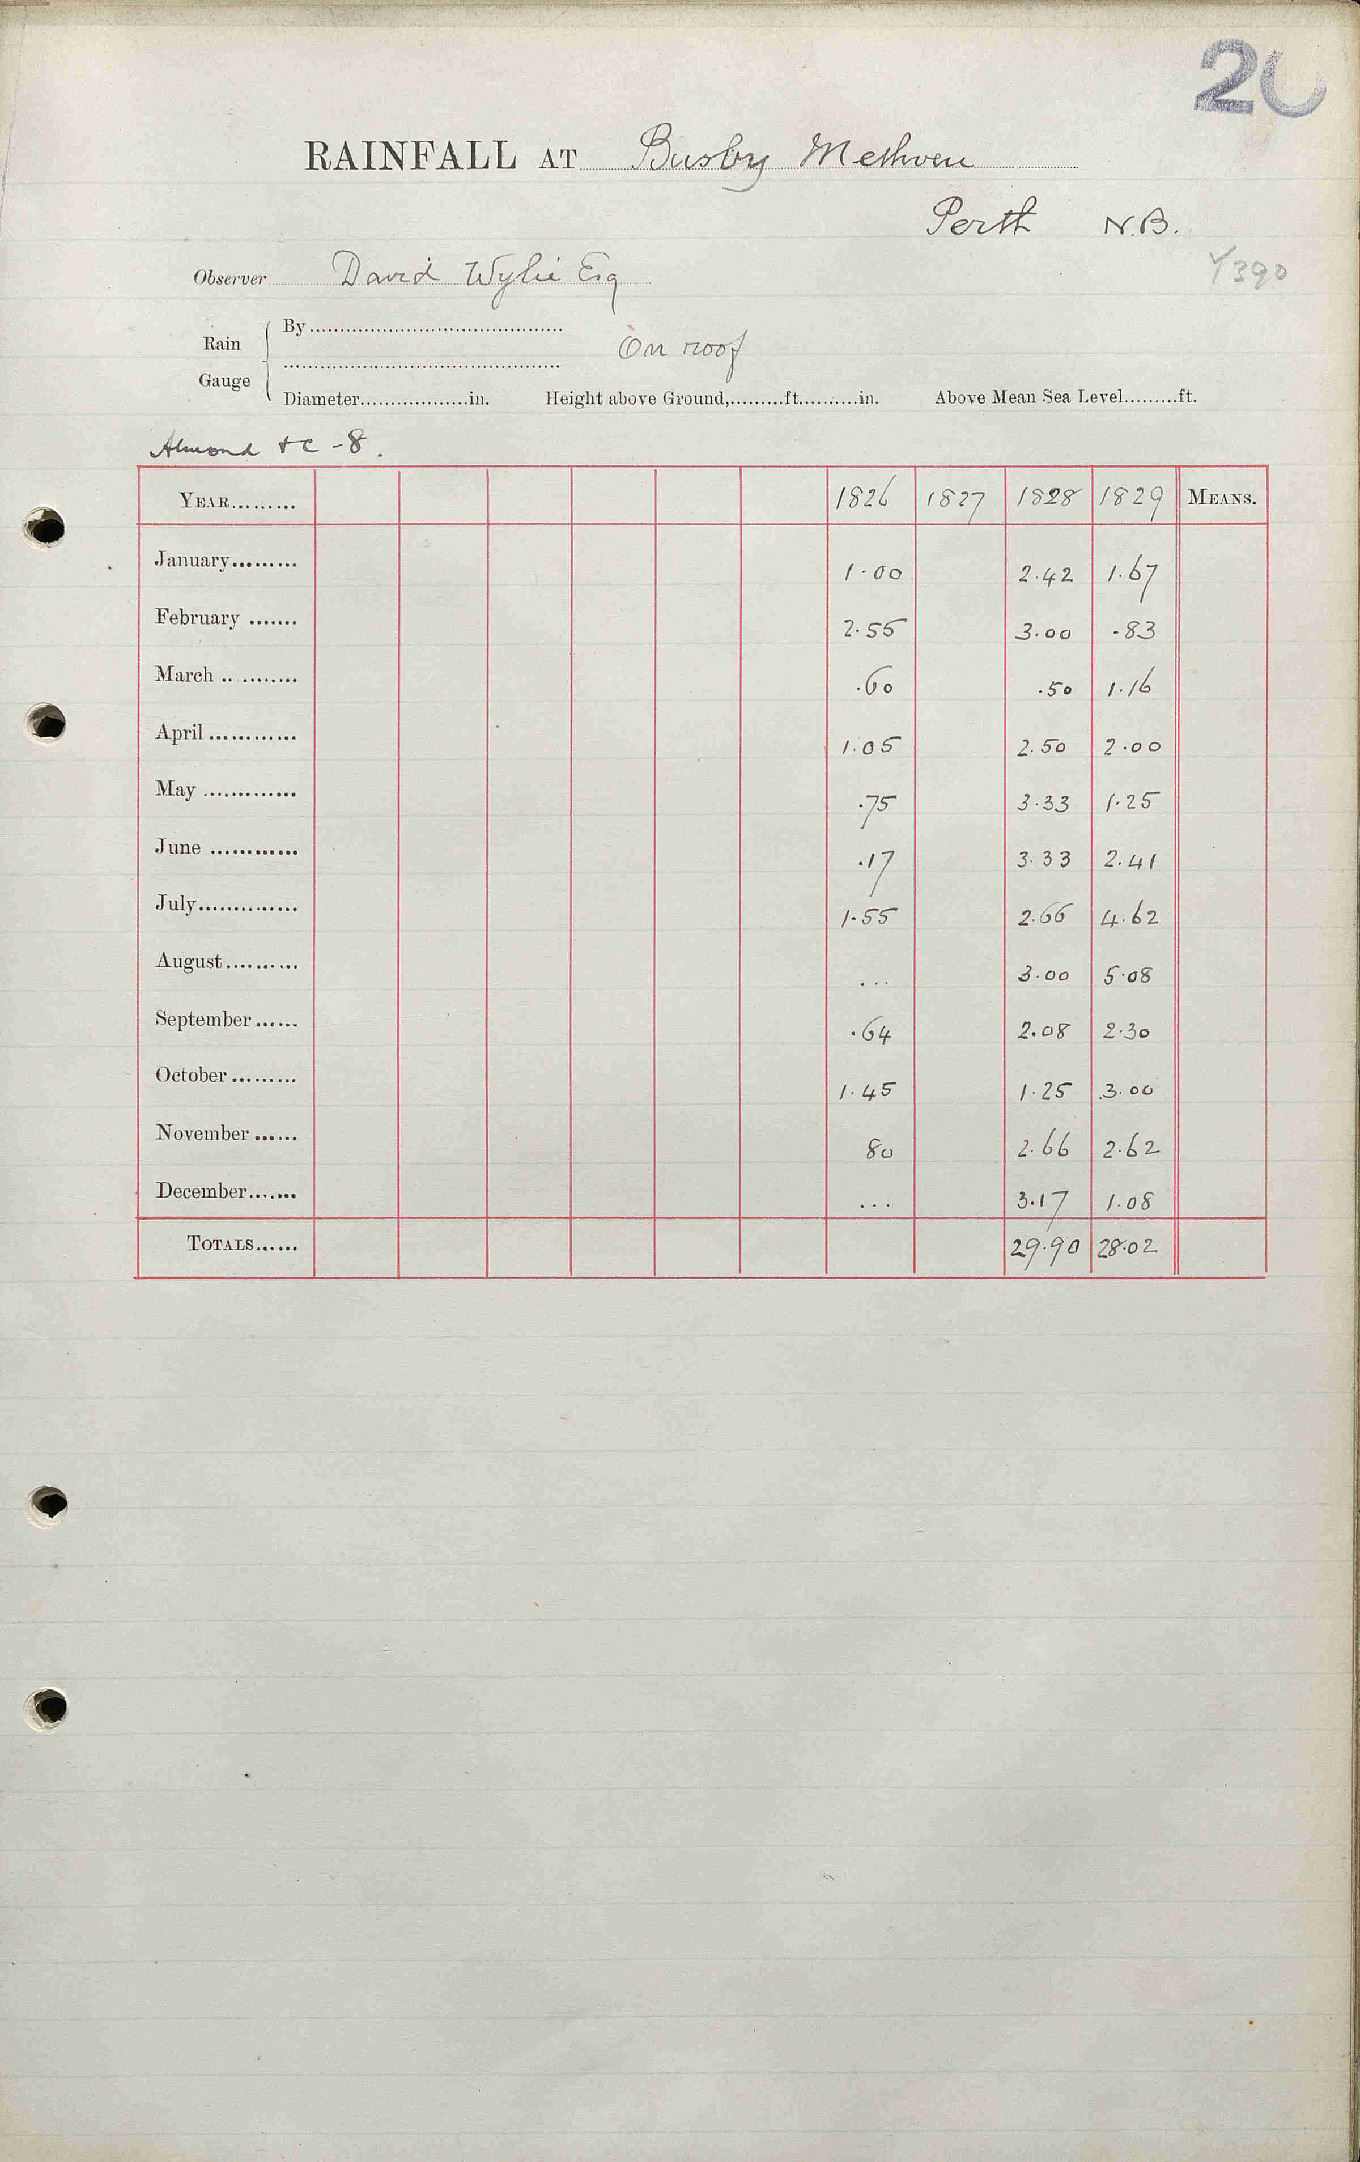 20
RAINFALL AT Busby Methven
Perth N.B.
Observer David Wylie Esq
Y390
Rain Gauge
By
On roof
Diameter..................in. Height above Ground,.........ft..........in. Above Mean Sea Level.........ft.
Almond &c - 8.
YEAR......... 1826 1827 1828 1829 MEANS.
January......... 1.00 2.42 1.67
February ....... 2.55 3.00 .83
March ............ .60 .50 1.16
April ............ 1.05 2.50 2.00
May ............. .75 3.33 1.25
June ............ .17 3.33 2.41
July.............. 1.55 2.66 4.62
August.......... ... 3.00 5.08
September...... .64 2.08 2.30
October ......... 1.45 1.25 3.00
November ...... 80 2.66 2.62
December....... ... 3.17 1.08
TOTALS...... 29.90 28.02